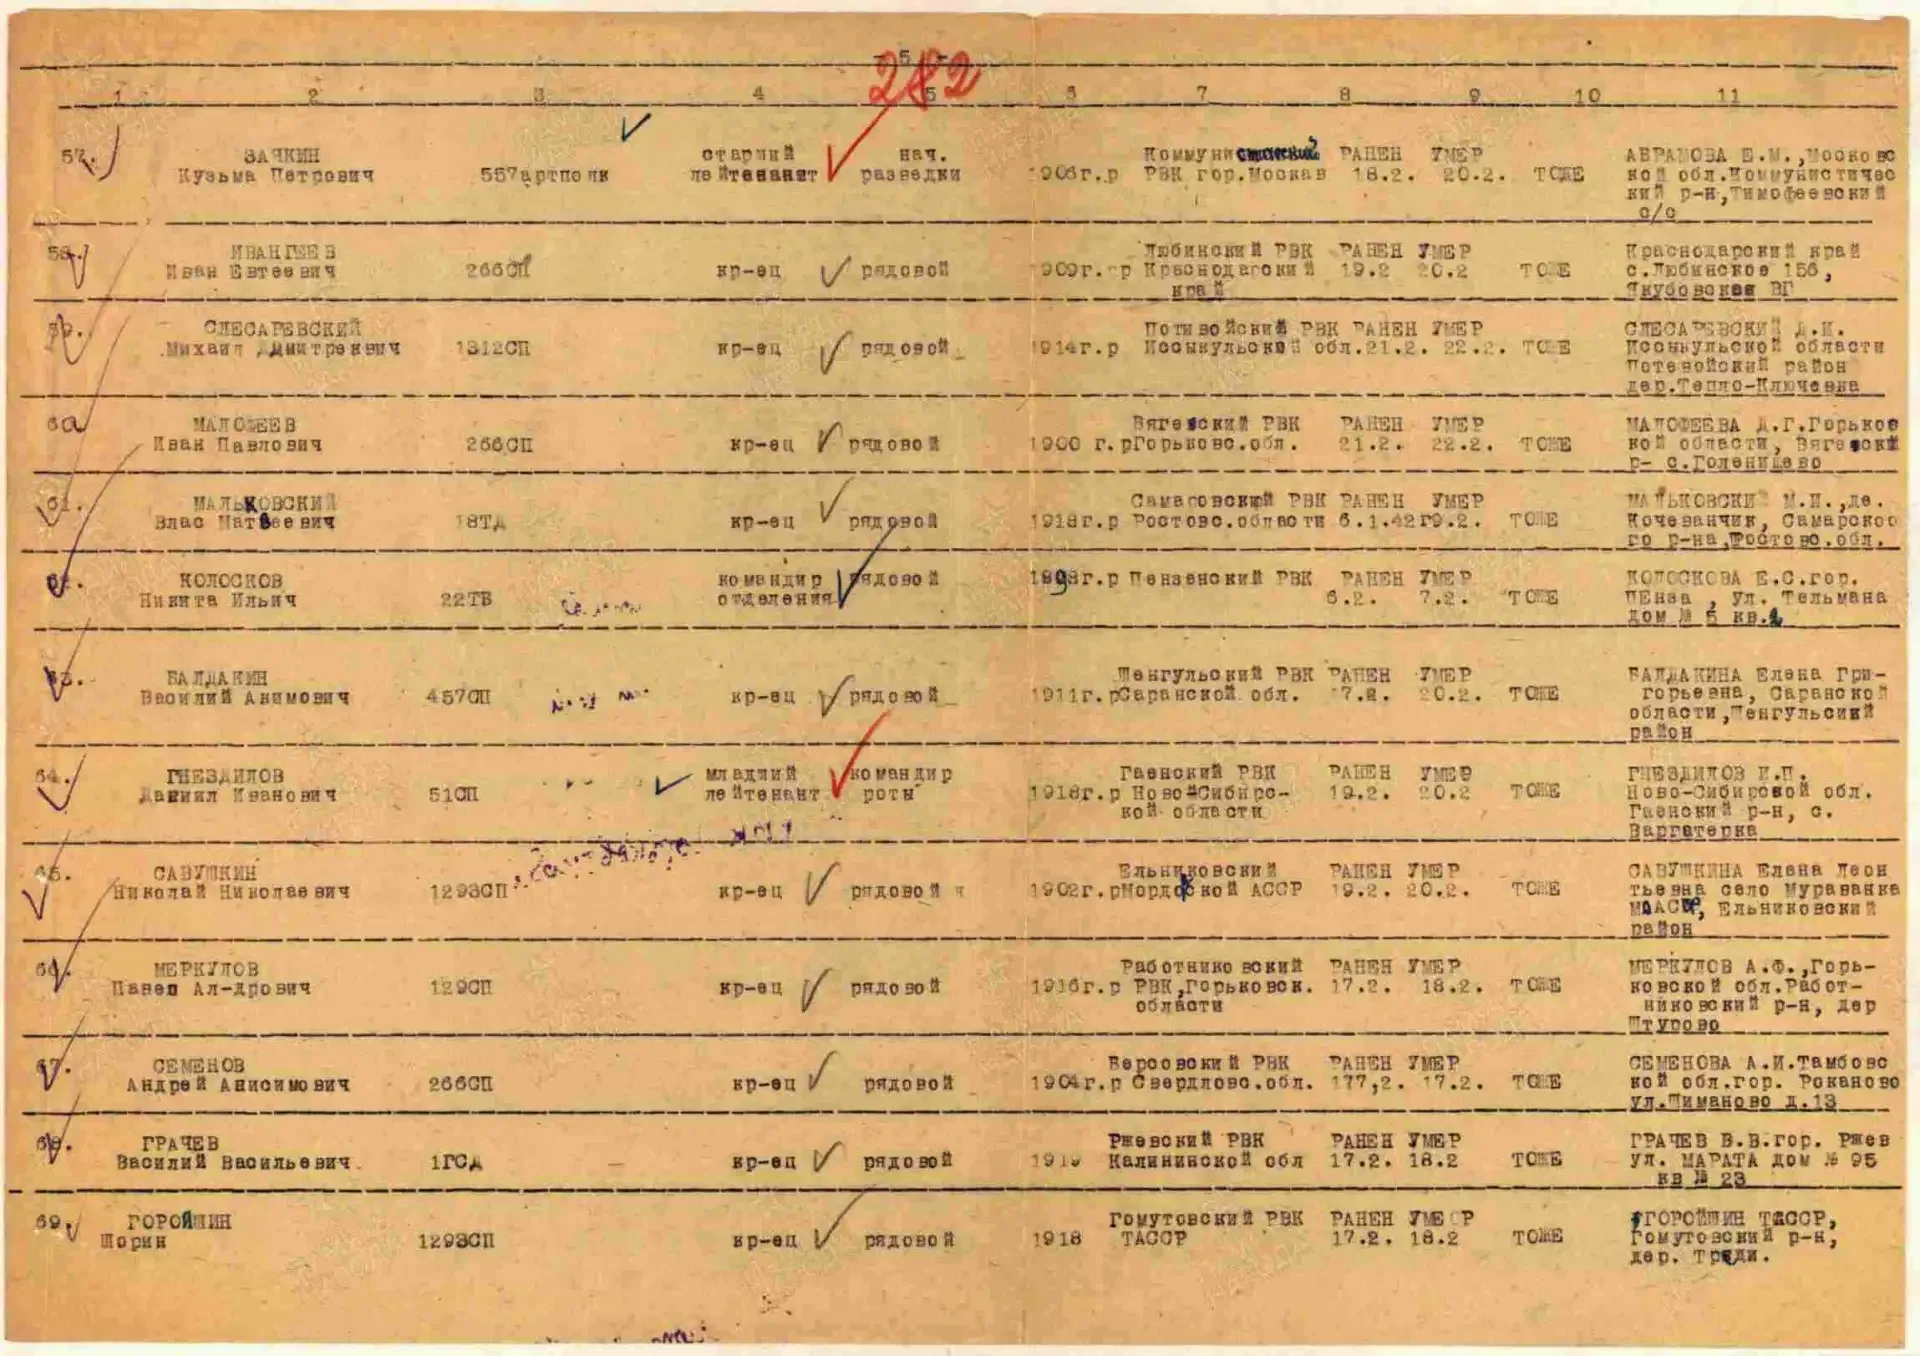 - 5 -
282
1 2 3 4 5 6 7 8 9 10 11
57. ЗАЧКИН старший нач. Коммуни РАНЕН УМЕР АВРАМОВА Е.М.,Московс
Кузьма Петрович 557артполк лейтенант разведки 1906г.р РВК гор.Москав 18.2. 20.2. ТОЖЕ кой обл.Коммунистичес
кий р-н,Тимофеевский
с/с
58. ИВАНГЕЕВ Любинский РВК РАНЕН УМЕР Краснодарский край
Иван Евтеевич 266СП кр-ец рядовой 1909г.р Краснодарский 19.2 20.2 ТОЖЕ с.Любинское 156,
край Якубовская ВГ
59. СЛЕСАРЕВСКИЙ Потивойский РВК РАНЕН УМЕР СЛЕСАРЕВСКИЙ Д.И.
Михаил Дмитриевич 1312СП кр-ец рядовой 1914г.р Иссыкульской обл.21.2. 22.2. ТОЖЕ Иссыкульской области
Потевойский район
дер.Тепло-Ключевка
60. МАЛОФЕЕВ РВК РАНЕН УМЕР МАЛОФЕЕВА Д.Г.Горьков
Иван Павлович 266СП кр-ец рядовой 1900 г.рГорьковс.обл. 21.2. 22.2. ТОЖЕ кой области,
р- с.Голенищево
61. МАЛЬКОВСКИЙ Самаровский РВК РАНЕН УМЕР МАЛЬКОВСКИ М.И.,де.
Влас Матвеевич 18ТД кр-ец рядовой 1918г.р Ростовс.области 6.1.42г9.2. ТОЖЕ Кочеванчик, Самарског
го р-на,Ростовс.обл.
62. КОЛОСКОВ командир рядовой 1898г.р Пензенский РВК РАНЕН УМЕР КОЛОСКОВА Е.С.гор.
Никита Ильич 22ТБ отделения 6.2. 7.2. ТОЖЕ ПЕнза , ул. Тельмана
дом № 5 кв.
63. БАЛДАКИН Шенгульский РВК РАНЕН УМЕР БАЛДАКИНА Елена Гри-
Василий Акимович 457СП кр-ец рядовой 1911г.рСаранской обл. 17.2. 20.2. ТОЖЕ горьевна, Саранской
области,Шенгульсикй
район
64. ГНЕЗДИЛОВ младший командир Гаенский РВК РАНЕН УМЕР ГНЕЗДИЛОВ И.П.
Даниил Иванович 51СП лейтенант роты 1918г.р Ново-Сибирс- 19.2. 20.2 ТОЖЕ Ново-Сибирской обл.
кой области Гаенский р-н, с.
Варгатерка
65. САВУШКИН Ельниковский РАНЕН УМЕР САВУШКИНА Елена Леон
Николай Николаевич 1293СП кр-ец рядовой 1902г.рМордовской АССР 19.2. 20.2. ТОЖЕ тьевна село Мураванка
МААСР, Ельниковский
район
66. МЕРКУЛОВ Работниковский РАНЕН УМЕР МЕРКУЛОВ А.Ф.,Горь-
Павел Ал-дрович 129СП кр-ец рядовой 1916г.р РВК,Горьковск. 17.2. 18.2. ТОЖЕ ковской обл.Работ-
области никовский р-н, дер
Штурово
67. СЕМЕНОВ Версовский РВК РАНЕН УМЕР СЕМЕНОВА А.И.Тамбовс
Андрей Анисимович 266СП кр-ец рядовой 1904г.р Свердловс.обл. 177,2. 17.2. ТОЖЕ кой обл.гор. Роканово
ул.Шиманово д.13
68. ГРАЧЕВ Ржевский РВК РАНЕН УМЕР ГРАЧЕВ В.В.гор. Ржев
Василий Васильевич 1ГСД кр-ец рядовой 1919 Калининской обл 17.2. 18.2 ТОЖЕ ул. МАРАТА дом № 95
кв № 23
69. ГОРОЙШИН Гомутовский РВК РАНЕН УМЕР ГОРОЙШИН ТАССР,
Шорин 1293СП кр-ец рядовой 1918 ТАССР 17.2. 18.2 ТОЖЕ Гомутовский р-н,
дер. Тради.